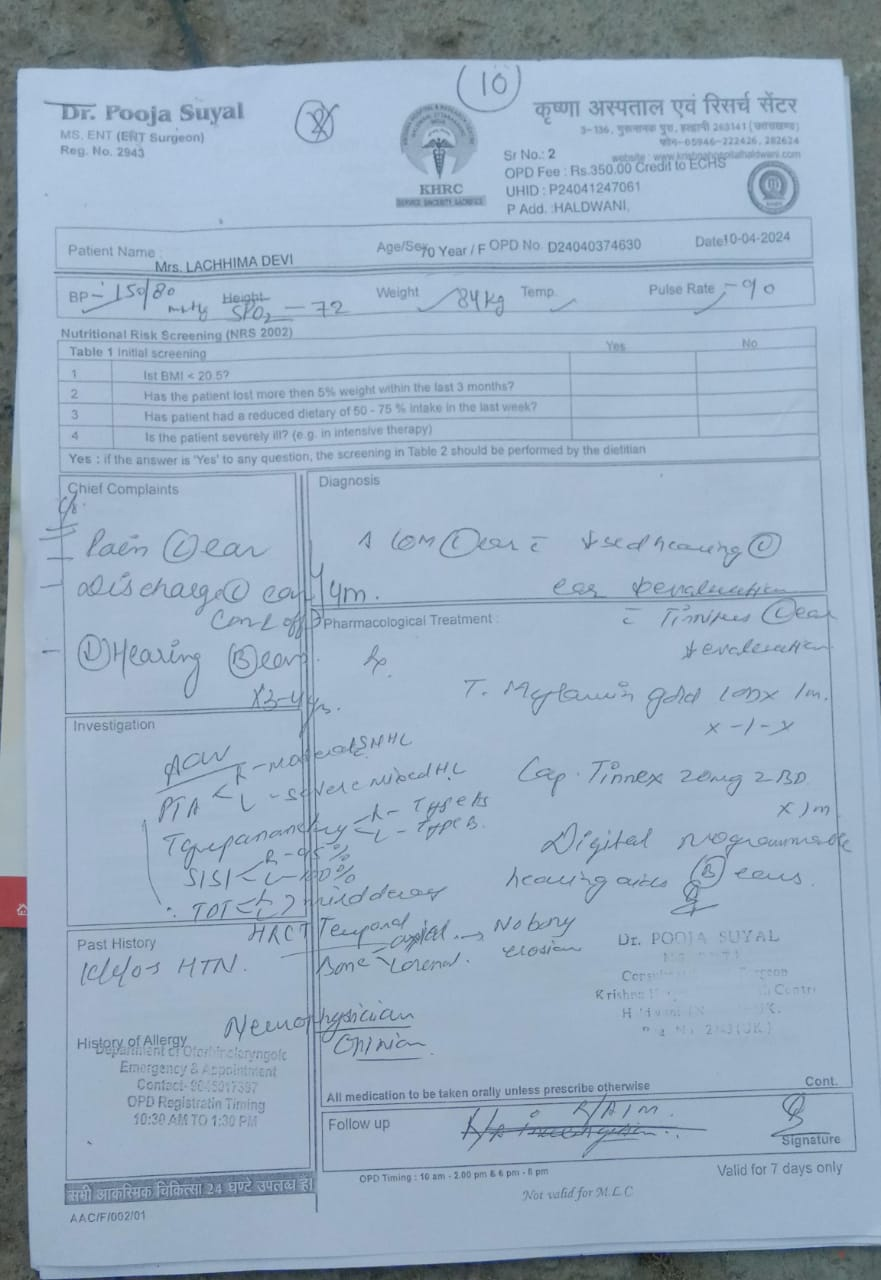 10
Dr. Pooja Suyal
MS. ENT (ENT Surgeon)
Reg. No. 2943
KHRC
SERVICE SINCERITY SACRIFICE
कृष्णा अस्पताल एवं रिसर्च सेंटर
3-136, गुरूनानक पुरा, हल्द्वानी 263141 (उत्तराखण्ड)
फोन-05946-222426, 282624
website : www.krishnahospitalhaldwani.com
Sr No.: 2
OPD Fee : Rs.350.00 Credit to ECHS
UHID : P24041247061
P Add. :HALDWANI,
Patient Name : Mrs. LACHHIMA DEVI Age/Sex 70 Year / F OPD No. D24040374630 Date 10-04-2024
BP - 150/80 mmHg Height SPO2 - 72 Weight 84 kg Temp. Pulse Rate - 90
Nutritional Risk Screening (NRS 2002)
Table 1 Initial screening Yes No
1 Ist BMI < 20.5?
2 Has the patient lost more then 5% weight within the last 3 months?
3 Has patient had a reduced dietary of 50 - 75 % intake in the last week?
4 Is the patient severely ill? (e.g. in intensive therapy)
Yes : if the answer is 'Yes' to any question, the screening in Table 2 should be performed by the dietitian
Chief Complaints
C/o
- Pain (L) ear
- Discharge (L) ear
- Hearing (B) ear
Diagnosis
(L) ear hearing (L)
ear
Tinnitus (L) ear
Pharmacological Treatment :
Rx
gold 1 OD x 1m.
x -1- x
Cap. Tinnex 20mg 2 BD
x 1m
Digital Programmable
hearing aids (B) ears.
Investigation
PTA < R - SNHL
L - severe mixed HL
Tympanometry < R - Type As
L - Type B.
SISI < R - 95%
L - 100%
TDT < R L mild decay
HRCT Temporal
Bone axial coronal. → No bony
erosion
Past History
K/c/o HTN.
physician
Opinion
History of Allergy
Department of Otorhinolaryngolo
Emergency & Appointment
OPD Registratin Timing
10:30 AM TO 1:30 PM
Dr. POOJA SUYAL
All medication to be taken orally unless prescribe otherwise Cont.
Follow up
R/A 1m.
Signature
सभी आकस्मिक चिकित्सा 24 घण्टे उपलब्ध हैं।
OPD Timing : 10 am - 2.00 pm & 6 pm - 8 pm
Valid for 7 days only
Not valid for M.L.C
AAC/F/002/01